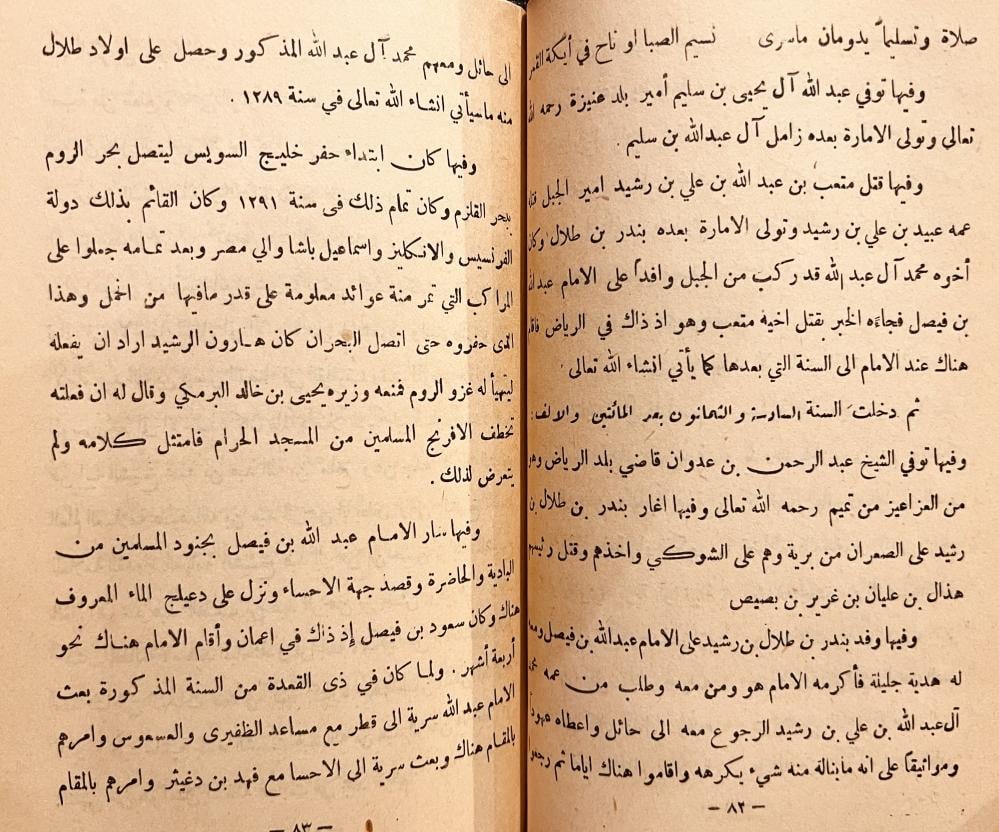 صلاة وتسليماً يدومان ماسرى نسيم الصبا او ناح في أيكة القمر
وفيها توفي عبد الله آل يحيى بن سليم أمير بلد عنيزة رحمه الله
تعالى وتولى الامارة بعده زامل آل عبدالله بن سليم .
وفيها قتل متعب بن عبد الله بن علي بن رشيد امير الجبل قتله
عمه عبيد بن علي بن رشيد وتولى الامارة بعده بندر بن طلال وكان
أخوه محمد آل عبد الله قد ركب من الجبل وافداً على الامام عبد الله
بن فيصل فجاءه الخبر بقتل اخيه متعب وهو اذ ذاك في الرياض فاقام
هناك عند الامام الى السنة التي بعدها كما يأتي انشاء الله تعالى .
ثم دخلت السنة السادسة والثمانون بعد المائتين والالف .
وفيها توفي الشيخ عبد الرحمن بن عدوان قاضي بلد الرياض وهو
من العزاعيز من تميم رحمه الله تعالى وفيها اغار بندر بن طلال بن
رشيد على الصعران من برية وهم على الشوكي واخذهم وقتل رئيسهم
هذال بن عليان بن غرير بن بصيص
وفيها وفد بندر بن طلال بن رشيد على الامام عبدالله بن فيصل ومعه
له هدية جليلة فأكرمه الامام هو ومن معه وطلب من عمه محمد
آل عبد الله بن علي بن رشيد الرجوع معه الى حائل واعطاه عهوداً
ومواثيقاً على انه مايناله منه شيء يكرهه واقاموا هناك اياما ثم رجعوا
— ٨٢ —
الى حائل ومعهم محمد آل عبد الله المذكور وحصل على اولاد طلال
منه ماسيأتي انشاء الله تعالى في سنة ١٢٨٩ .
وفيها كان ابتداء حفر خليج السويس ليتصل بحر الروم
ببحر القلزم وكان تمام ذلك في سنة ١٢٩١ وكان القائم بذلك دولة
الفرنسيس والانكليز واسماعيل باشا والي مصر وبعد تمامه جعلوا على
المراكب التي تمر منة عوائد معلومة على قدر مافيها من الحمل وهذا
الذى حفروه حتى اتصل البحران كان هارون الرشيد اراد ان يفعله
ليتهيأ له غزو الروم فمنعه وزيره يحيى بن خالد البرمكي وقال له ان فعلته
تخطف الافرنج المسلمين من المسجد الحرام فامتثل كلامه ولم
يتعرض لذلك .
وفيها سار الامام عبد الله بن فيصل بجنود المسلمين من
البادية والحاضرة وقصد جهة الاحساء ونزل على دعيلج الماء المعروف
هناك وكان سعود بن فيصل إذ ذاك في اعمان وأقام الامام هناك نحو
أربعة أشهر . ولما كان في ذى القعدة من السنة المذكورة بعث
الامام عبد الله سرية الى قطر مع مساعد الظفيرى والعسعوس وامرهم
بالمقام هناك وبعث سرية الى الاحسا مع فهد بن دغيثر وامرهم بالمقام
— ٨٣ —